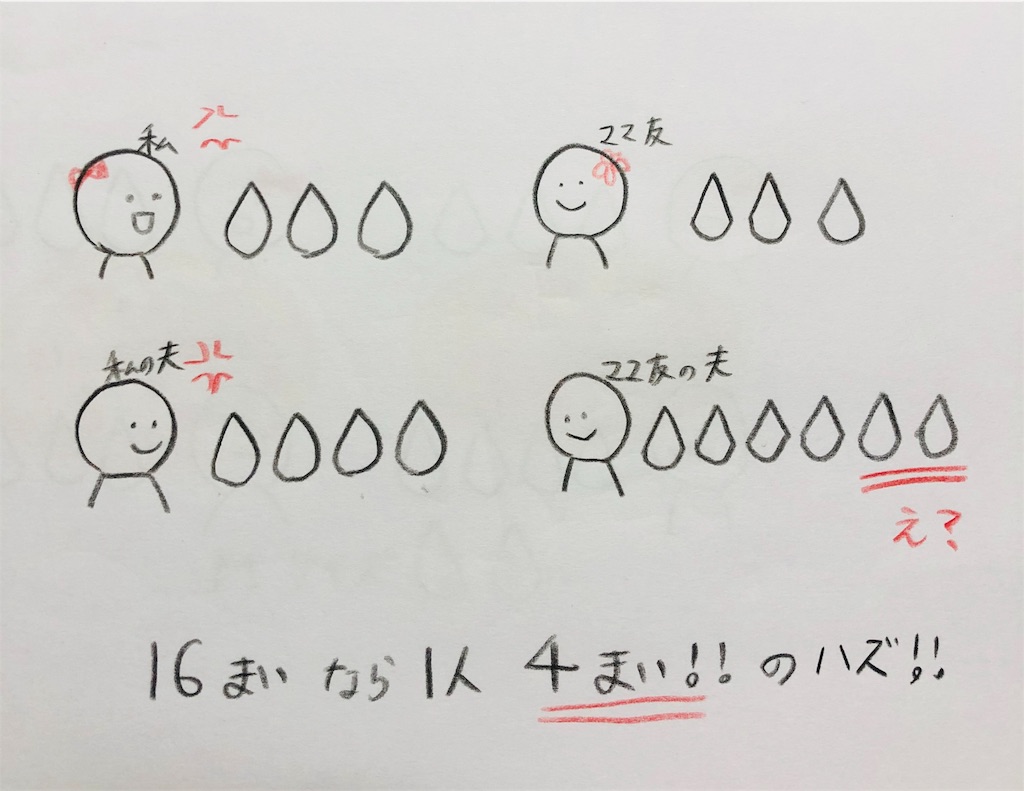 私
ママ友
私の夫
ママ友の夫
え?
16まいなら1人 4まい!!のハズ!!